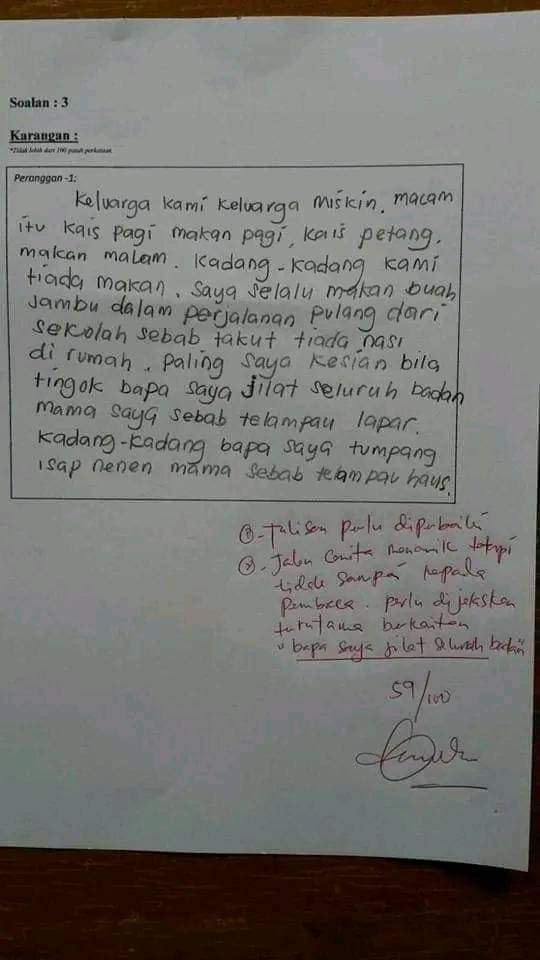 Soalan : 3
Karangan :
*Tidak lebih dari 100 patah perkataan
Peranggan -1:
Keluarga kami keluarga miskin. macam
itu kais pagi makan pagi, kais petang,
makan malam. Kadang-kadang kami
tiada makan. Saya selalu makan buah
Jambu dalam perjalanan pulang dari
sekolah sebab takut tiada nasi
di rumah. paling saya kesian bila
tingok bapa saya jilat seluruh badan
mama saya sebab telampau lapar.
Kadang-kadang bapa saya tumpang
isap nenen mama sebab telampau haus.
- Tulisan perlu diperbaiki
- Jalan cerita menarik tetapi
tidak sampai kepada
pembaca. perlu dijelaskan
terutama berkaitan
"bapa saya jilat seluruh badan"
59/100